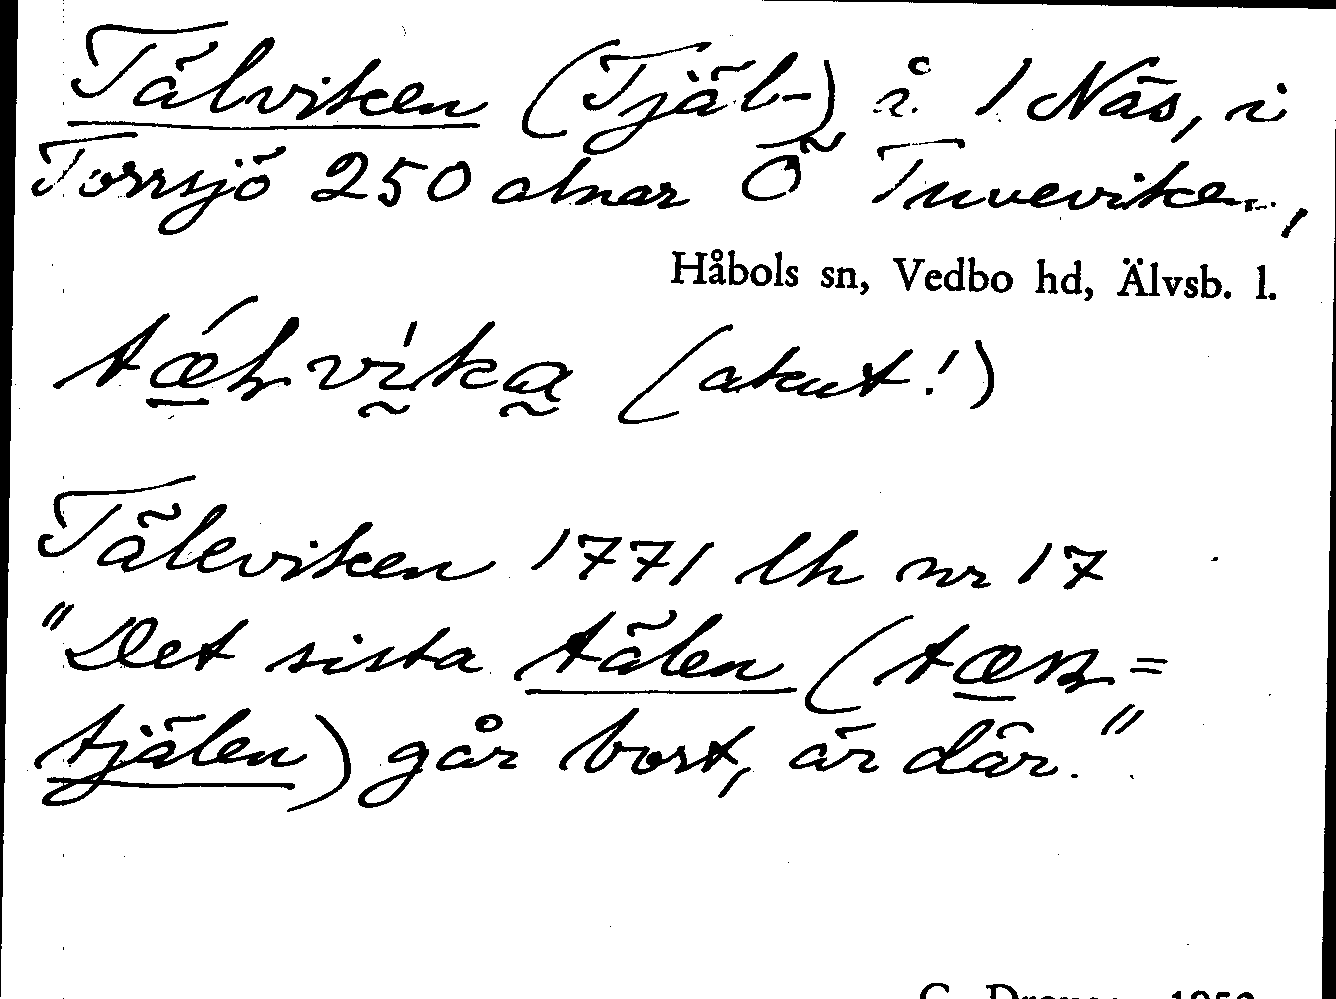 Tälviken (Tjäl-) å 1 Näs, i
Torrsjö 250 alnar Ö Tuveviken,
Håbols sn, Vedbo hd, Älvsb. l.
(akut!)
Täleviken 1771 lh nr 17
"Det sista tälen (tæln =
tjälen) går bort, är där."